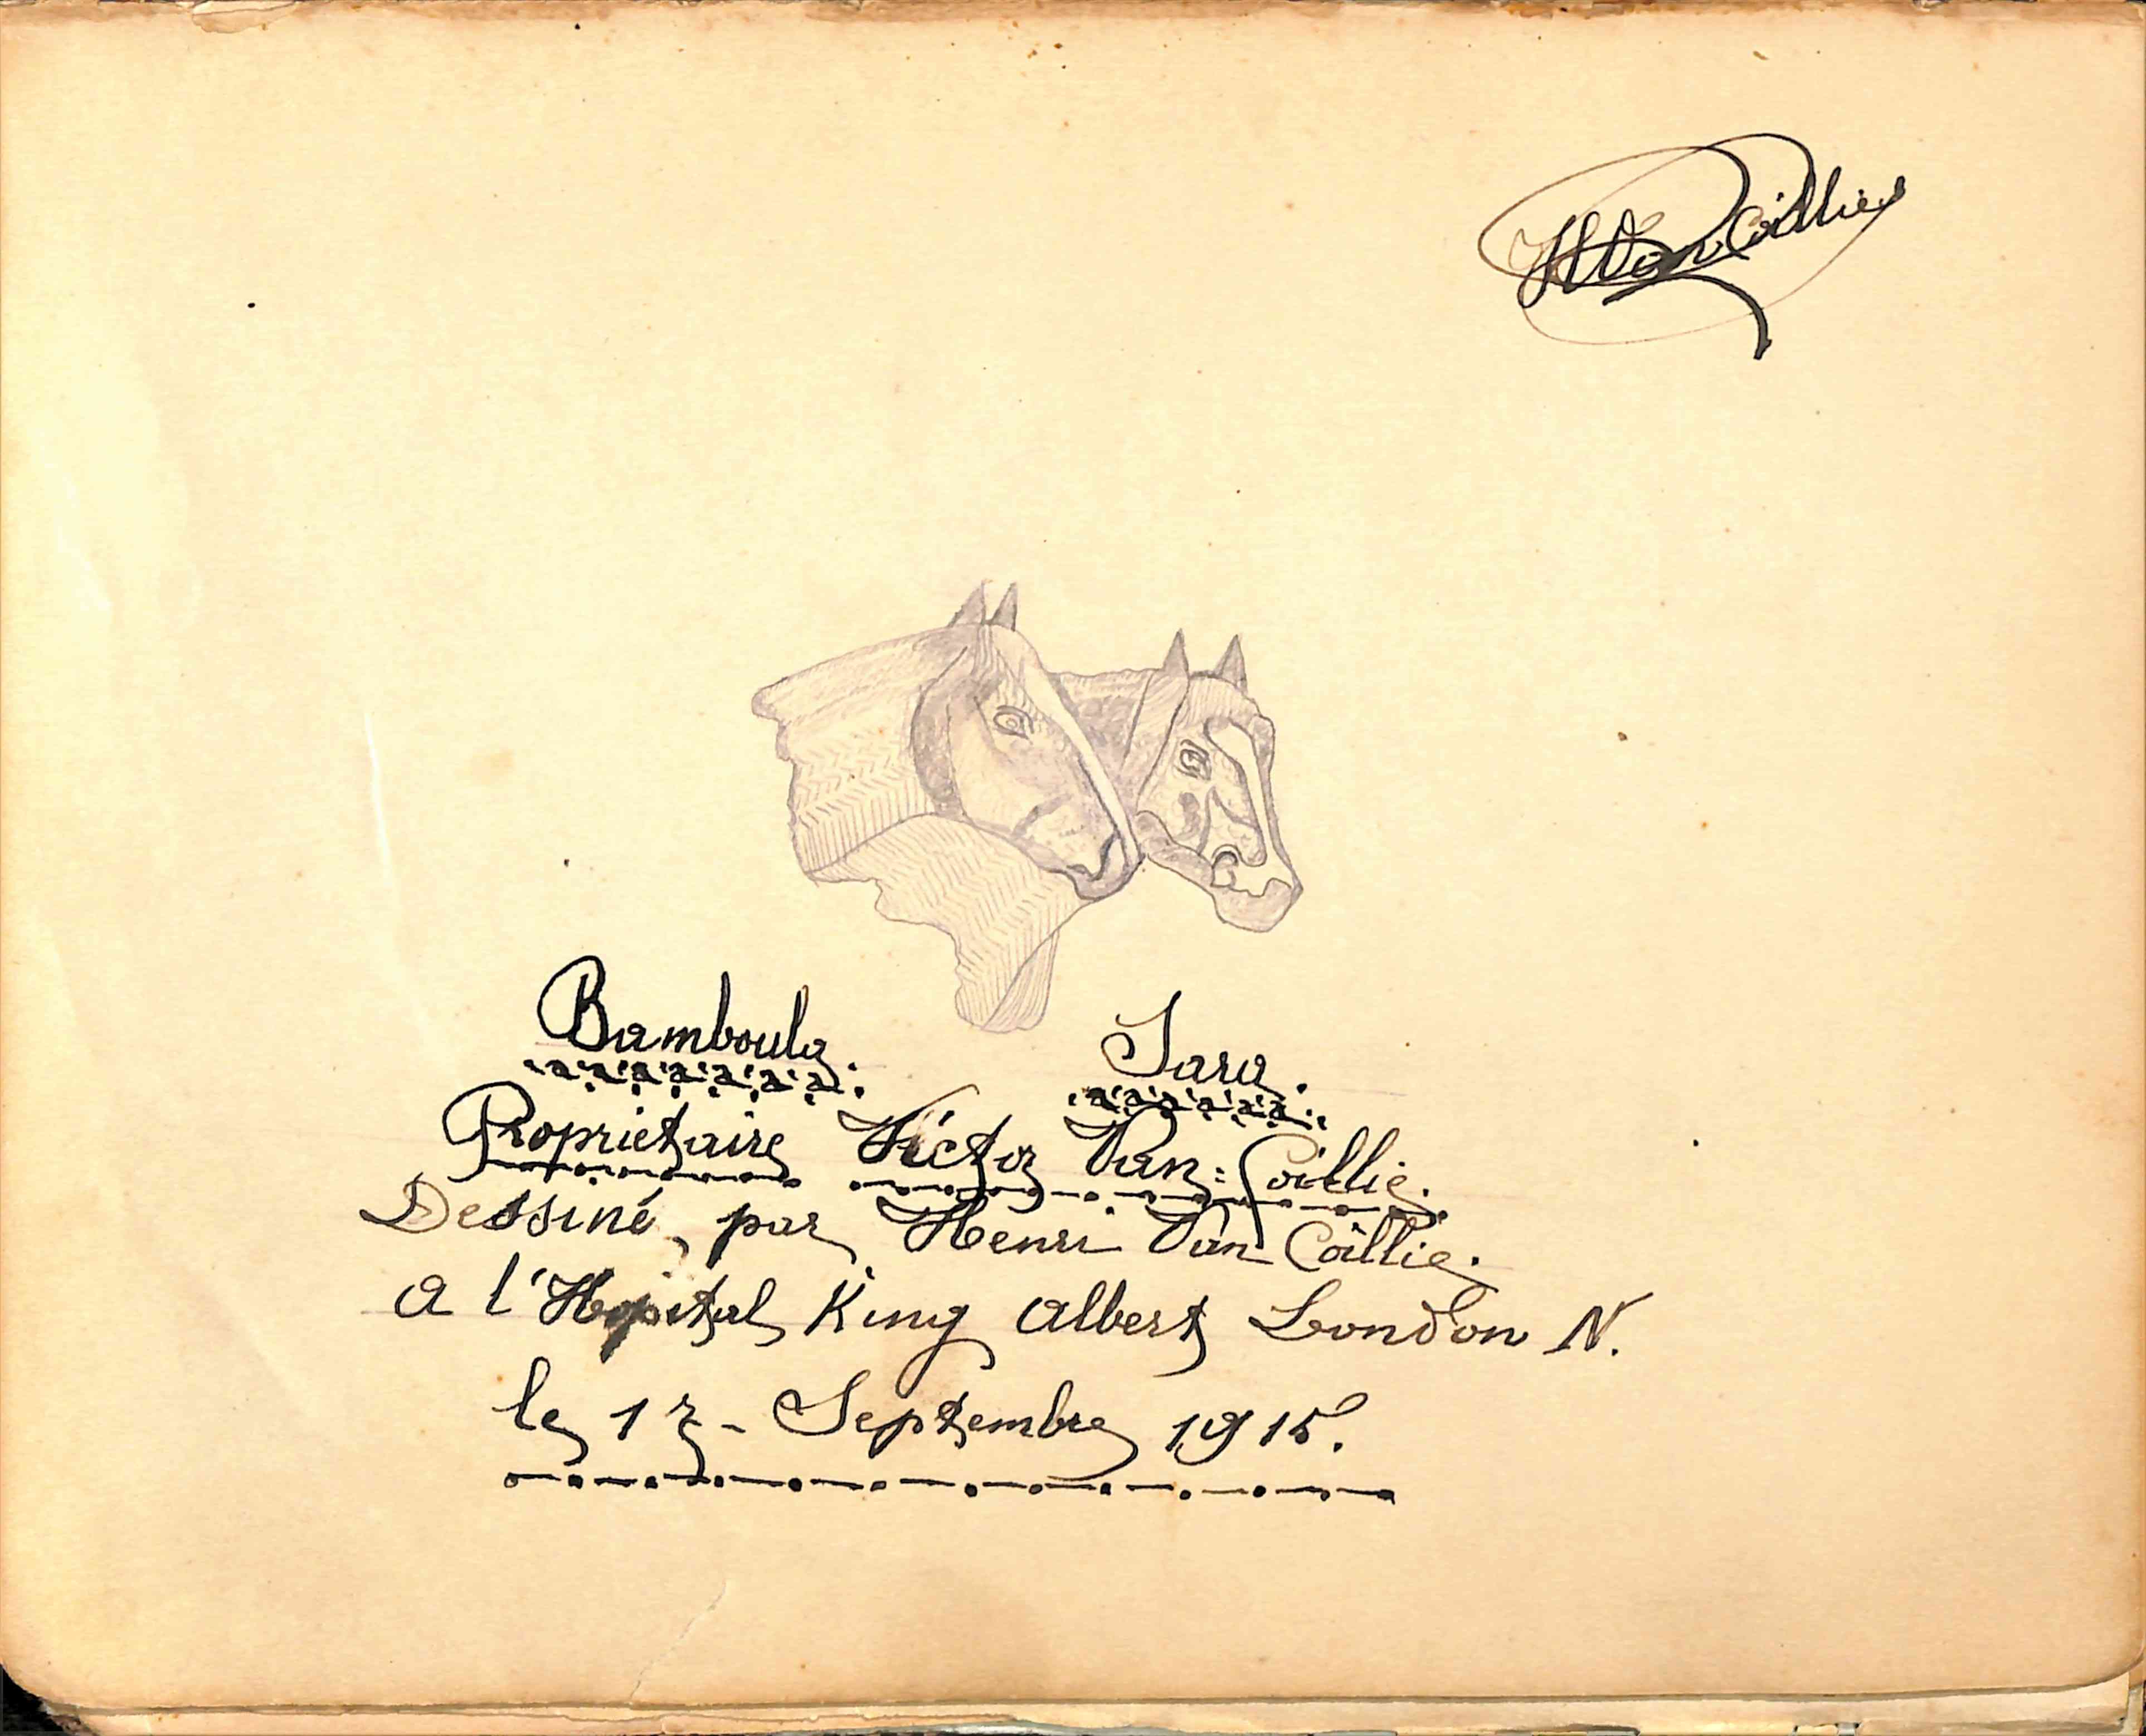 HVan Coillie
Bamboula. Sara.
Proprietaire Victor Van=Coillie.
Dessiné par Henri Van Coillie.
a l'Hopital King Albert London N.
le Septembre 1915.